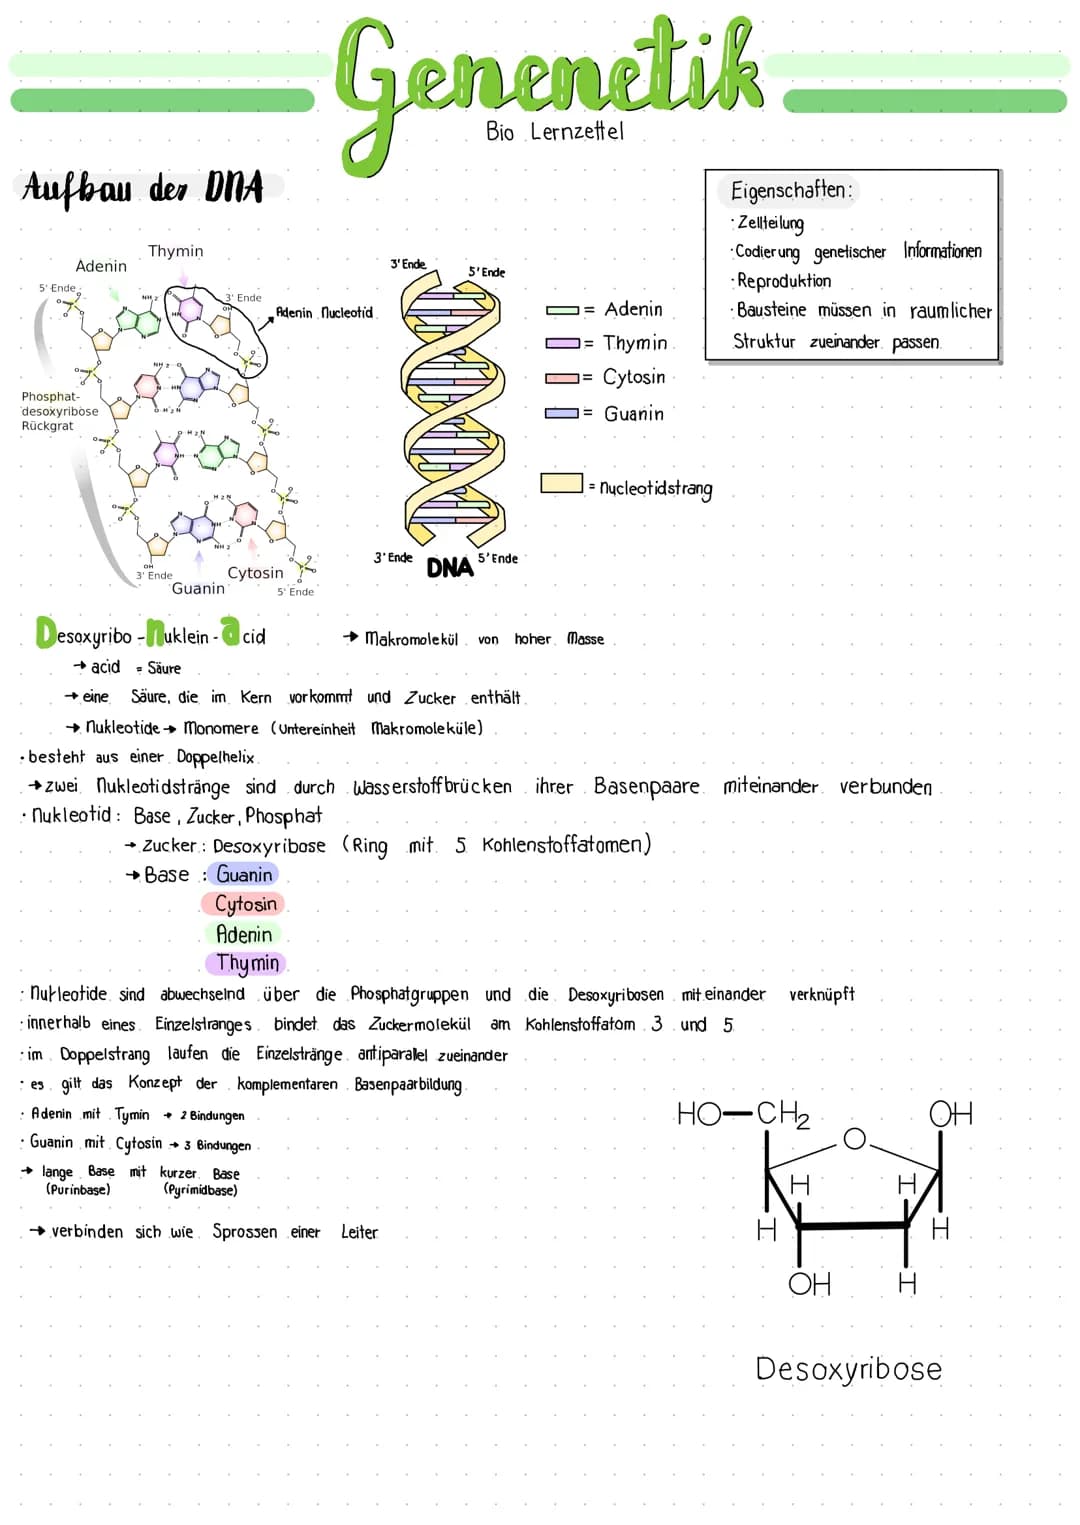 Genenetik
Bio Lernzettel
Aufbau der DNA
Eigenschaften:
· Zellteilung
· Codierung genetischer Informationen
· Reproduktion
· Bausteine müssen in räumlicher
Struktur zueinander passen
Thymin
Adenin
5' Ende
3' Ende
Adenin Nucleotid
Phosphat-
desoxyribose
Rückgrat
3' Ende
Guanin
Cytosin
5' Ende
3' Ende
5' Ende
3' Ende
DNA
5' Ende
= Adenin
= Thymin
= Cytosin
= Guanin
= Nucleotidstrang
Desoxyribo - Nuklein - acid
→ Makromolekül von hoher Masse
→ acid = Säure
→ eine Säure, die im Kern vorkommt und Zucker enthält
→ Nukleotide → Monomere (Untereinheit Makromoleküle)
· besteht aus einer Doppelhelix
→ zwei Nukleotidstränge sind durch Wasserstoffbrücken ihrer Basenpaare miteinander verbunden
· Nukleotid: Base, Zucker, Phosphat
→ Zucker: Desoxyribose (Ring mit 5 Kohlenstoffatomen)
→ Base : Guanin
Cytosin
Adenin
Thymin
· Nukleotide sind abwechselnd über die Phosphatgruppen und die Desoxyribosen miteinander verknüpft
· innerhalb eines Einzelstranges bindet das Zuckermolekül am Kohlenstoffatom 3 und 5
· im Doppelstrang laufen die Einzelstränge antiparallel zueinander
· es gilt das Konzept der komplementaren Basenpaarbildung
· Adenin mit Tymin → 2 Bindungen
· Guanin mit Cytosin → 3 Bindungen
→ lange Base mit kurzer Base
(Purinbase) (Pyrimidbase)
→ verbinden sich wie Sprossen einer Leiter
HO—CH₂
OH
O
H
H
H
H
OH
H
Desoxyribose